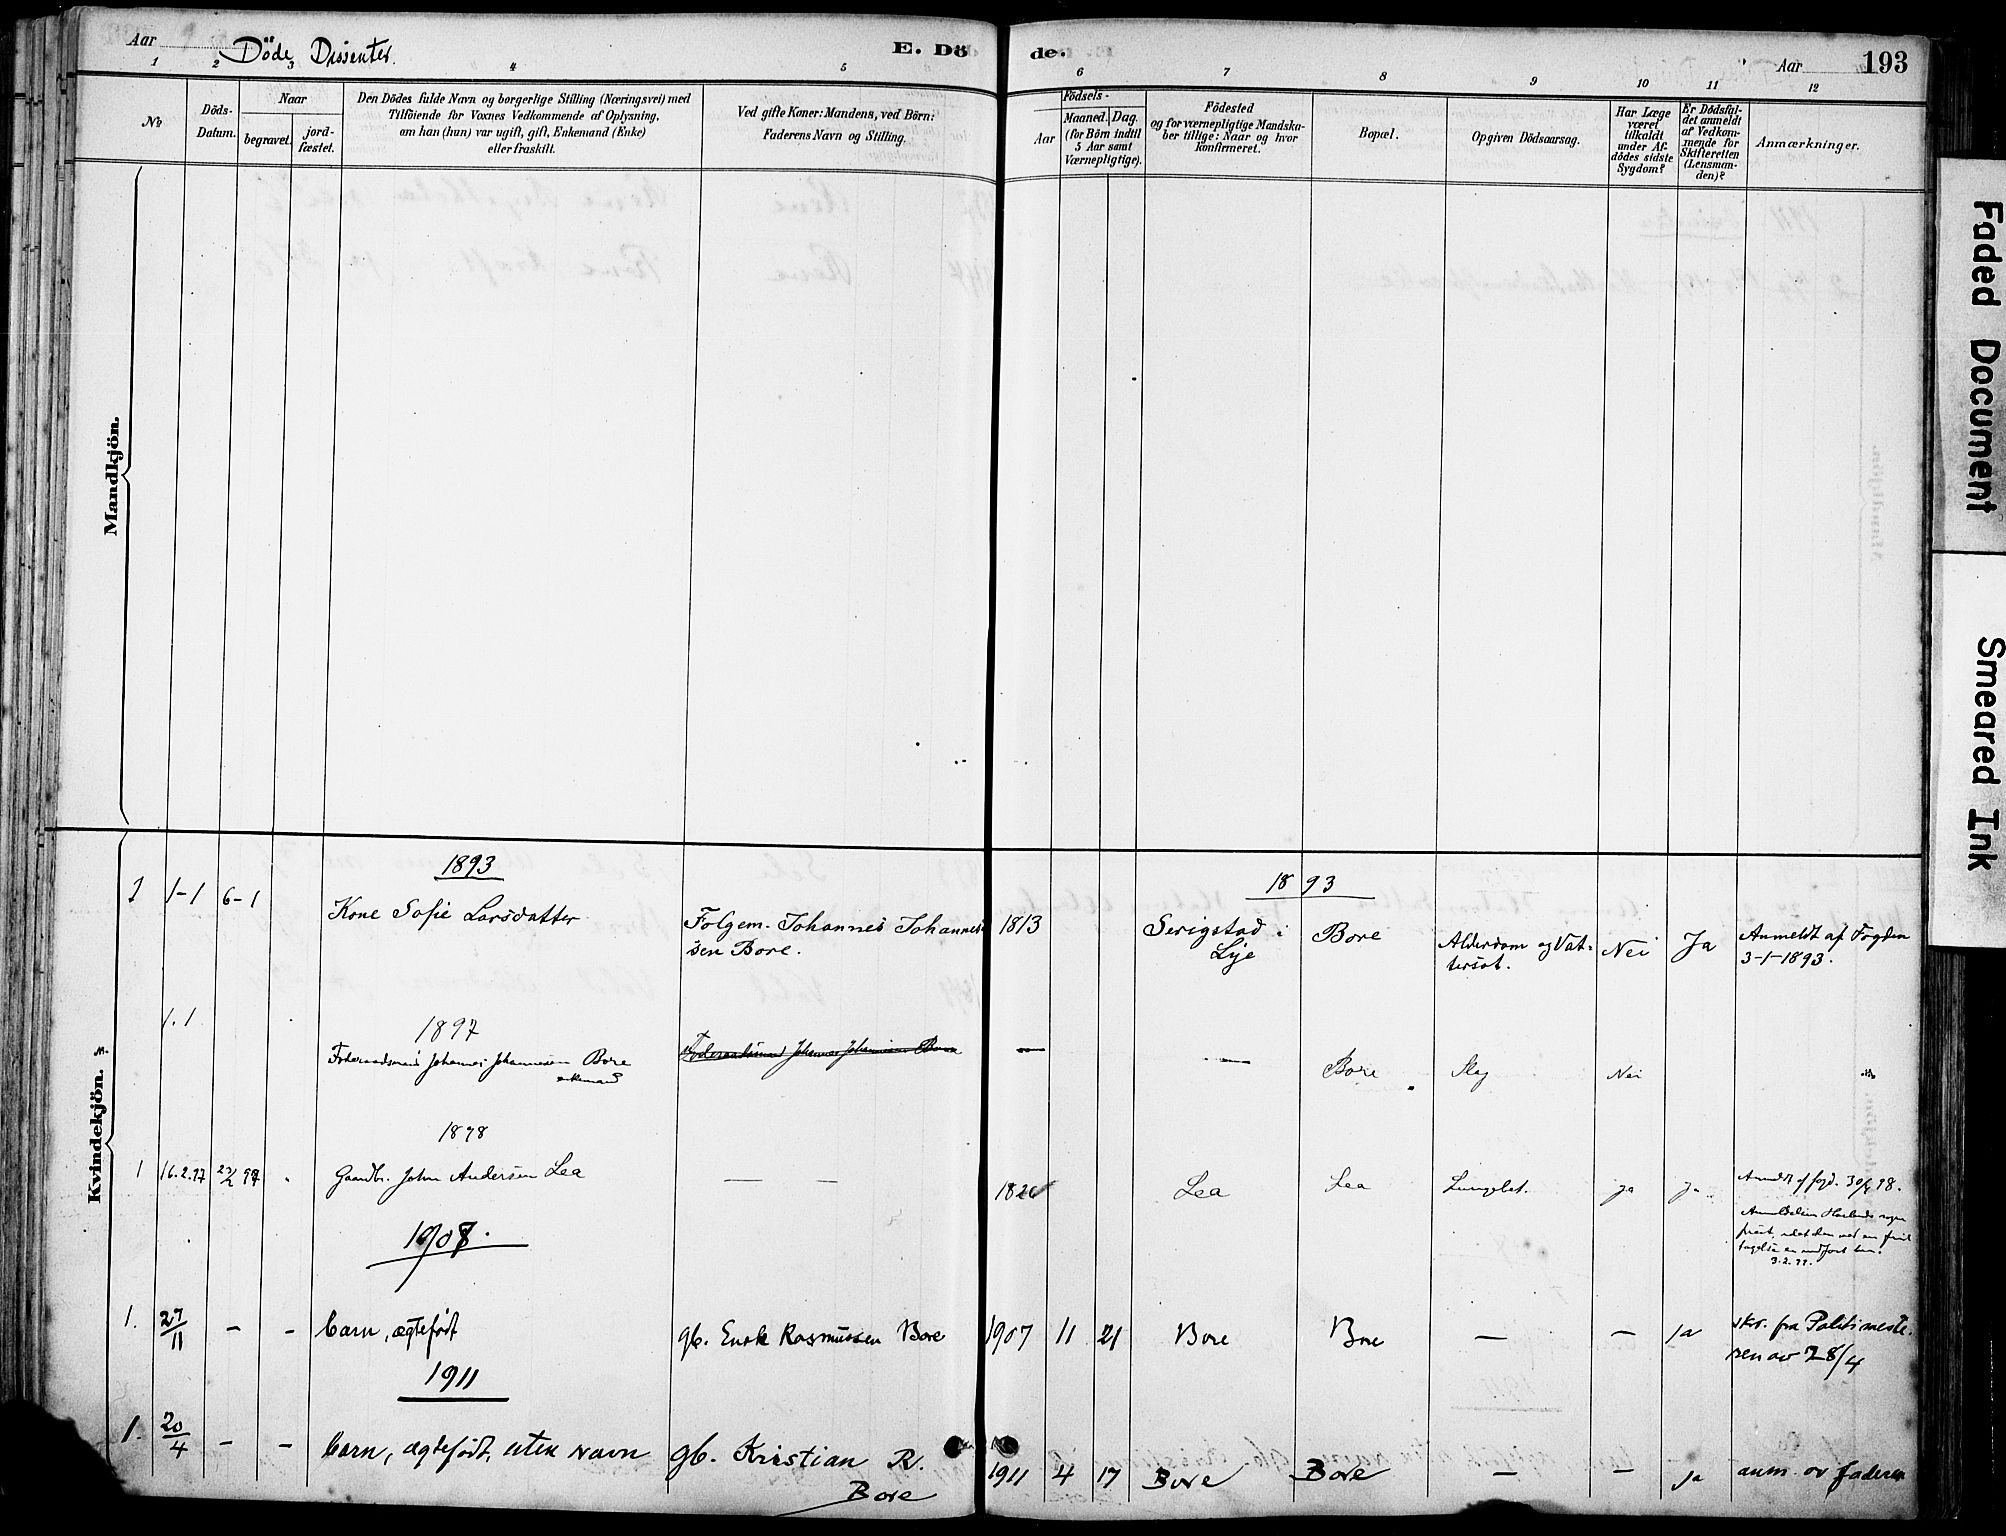 Aar
Döde Dissenter.
E. Dö
de.
Aar
193
1
2
3
4
5
6
7
8
9
10
11
12
No
Döds-
Datum.
Naar
begravet.
jord-
fæstet.
Den Dödes fulde Navn og borgerlige Stilling (Næringsvei) med
Tilföiende for Voxnes Vedkommende af Oplysning,
om han (hun) var ugift, gift, Enkemand (Enke)
eller fraskilt.
Ved gifte Koner: Mandens, ved Börn:
Faderens Navn og Stilling.
Födsels-
Aar
Maaned.
Dag.
(for Börn indtil
5 Aar samt
Værnepligtige).
Födested
og for værnepligtige Mandska-
ber tillige: Naar og hvor
konfirmeret.
Bopæl.
Opgiven Dödsaarsag.
Har Læge
været
tilkaldt
under Af-
dödes sidste
Sygdom?
Er Dödsfal-
det anmeldt
af Vedkom-
mende for
Skifteretten
(Lensman-
den)?
Anmærkninger.
Mandkjön.
Kvindekjön.
Faded Document
Smeared Ink
1893
1893
1 1-1 6-1 Kone Sofie Larsdatter
Folgem. Johannes Johannes
sen Bore.
1813
Serigstad i
Lye
Bore
Alderdom og Vat-
tersot.
Nei
Ja
Anmeldt af Fogden
3-1-1893.
1.1
1897
Foderaadsmand Johannes Johannesen Bore
enkemand
Foderaadsmand Johannes Johannesen Bore
—
—
Bore
Nei
1898
1 16.2.97
Gaardbr. John Andersen Lea
— —
Lea
Lea
Lungebet.
Ja
Ja
3.2.99.
1908.
1. 27/11 - - barn, ægtefødt
gb. Enok Rasmussen Bore
1907 11 21 Bore Bore — — Ja
skr. fra Politimeste-
ren av 28/4
1911
1. 20/4 - - barn, ægtefødt, uten navn
gb. Kristian R.
Bore
1911 4 17 Bore Bore — — Ja anm. av faderen